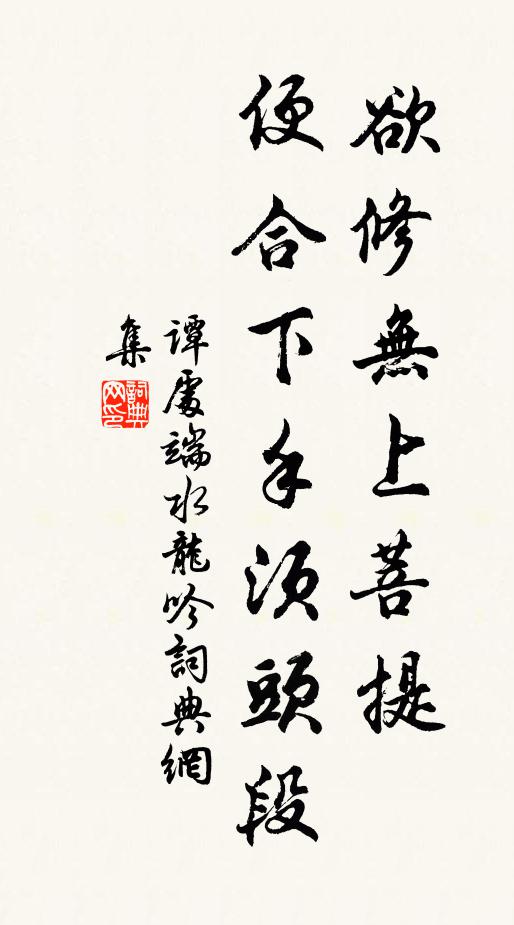 欲修無上菩提
便合下手須頭段
譚處端水龍吟詞典網
集
詞典
网印